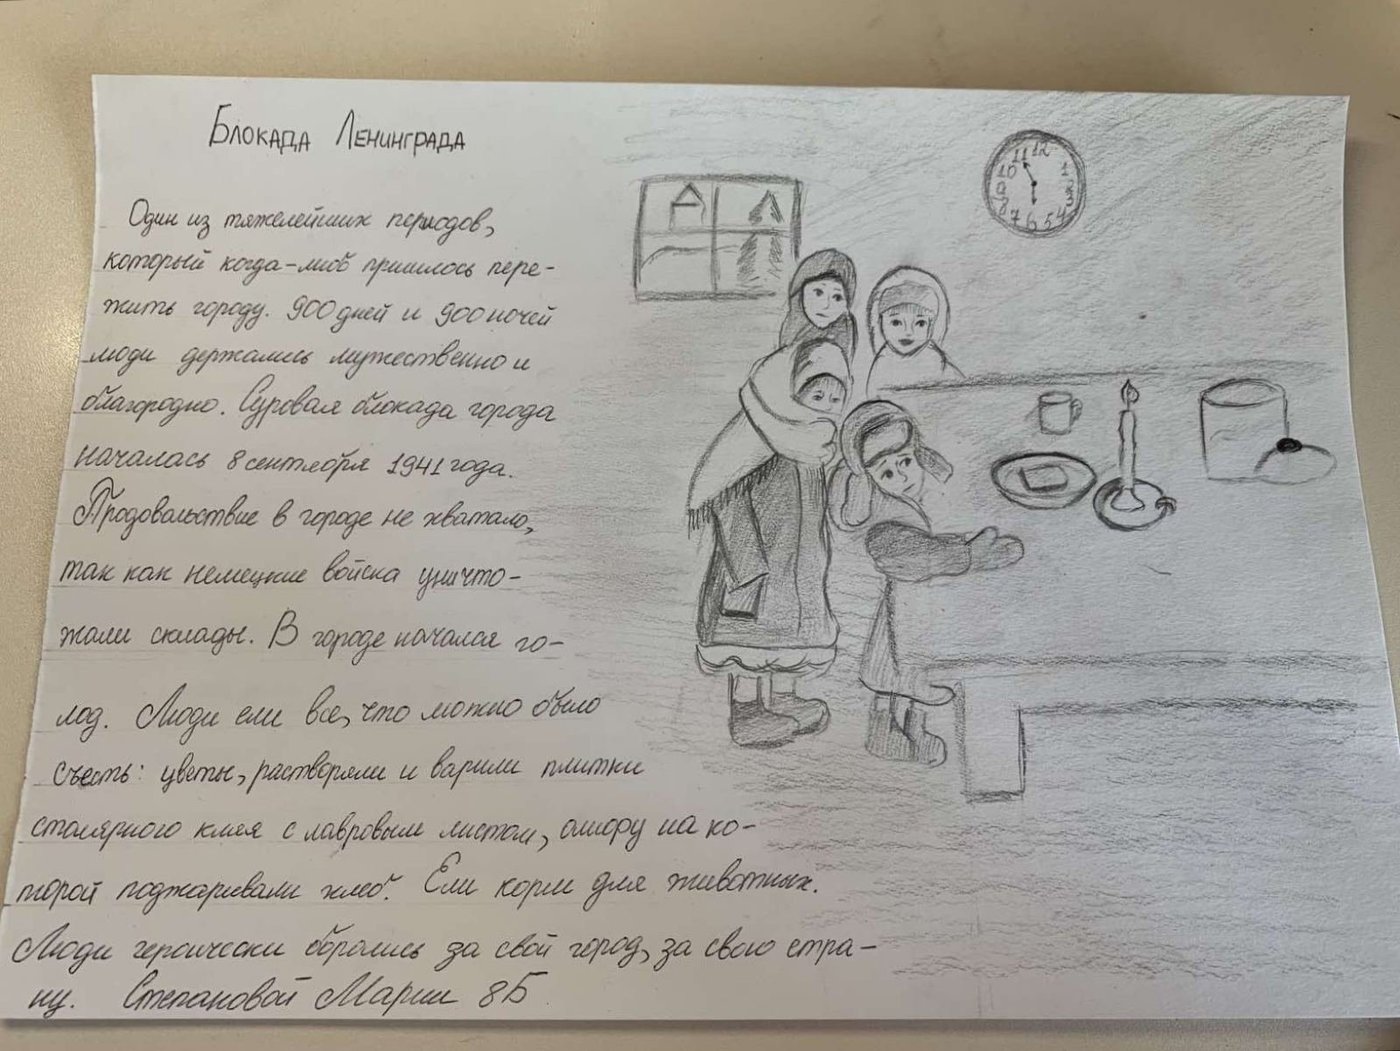 Блокада Ленинграда
Один из тяжелейших периодов,
который когда-либо пришлось пере-
жить городу. 900 дней и 900 ночей
люди держались мужественно и
благородно. Суровая блокада города
началась 8 сентября 1941 года.
Продовольствие в городе не хватало,
так как немецкие войска уничто-
жали склады. В городе начался го-
лод. Люди ели все, что можно было
съесть: цветы, растворяли и варили плитки
столярного клея с лавровым листом, олифу на ко-
торой поджаривали хлеб. Ели корм для животных.
Люди героически боролись за свой город, за свою стра-
ну. Степановой Марии 8Б
11 12 1
10
9 3
8 7 6 5 4